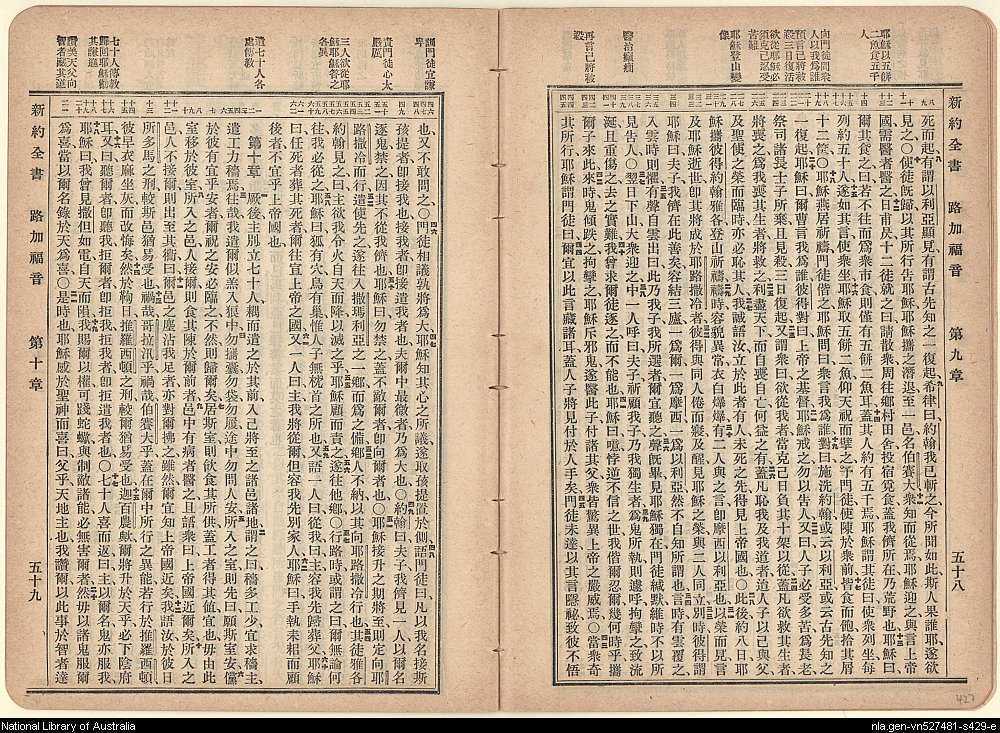 耶穌以五餅
二魚食五千
人
向門徒問衆
人以我爲誰
預言己將被
殺三日復活
欲從耶穌必
須克己忍受
苦難
耶穌登山變
像
醫治癲癎
再言己將被
殺
新約全書 路加福音 第九章 五十八
死而起有謂以利亞顯見有謂古先知之一復起希律曰約翰我已斬之今所聞如此斯人果誰耶遂欲
見之〇使徒旣歸以其所行告耶穌耶穌攜之潛退至一邑名伯賽大衆知而從焉耶穌迎之與言上帝
國需醫者醫之日甫昃十二徒就之曰請散衆周往鄉村田舍投宿覓食蓋我儕所在乃荒野也耶穌曰
爾其食之曰若不往而爲衆市食則僅有五餅二魚耳蓋其人約有五千焉耶穌謂其徒曰使衆列坐每
列約五十人遂如其言使衆坐耶穌取五餅二魚仰天祝而擘之予門徒使陳於衆前皆食而飽拾其屑
十二筐〇耶穌燕居祈禱門徒偕之耶穌問曰衆言我爲誰對曰施洗約翰或云以利亞或云古先知之
一復起耶穌曰爾曹言我爲誰彼得對曰上帝之基督耶穌戒之勿以告人又曰人子必受多苦爲長老
祭司諸長士子所棄且見殺三日復起又謂衆曰欲從我者當克己日負其十架以從蓋凡欲救其生者
將喪之爲我喪其生者將救之利盡天下而自喪自亡何益之有蓋凡恥我及我道者迨人子以己與父
及聖使之榮而臨時亦必恥其人我誠語汝立於此者有人未死之先得見上帝國也〇此後約八日耶
穌攜彼得約翰雅各登山祈禱禱時容貌異常衣白爆爆有二人與之言卽摩西以利亞也以榮而見言
及耶穌逝世卽其將於耶路撒冷者彼得與同人倦而寢及醒見耶穌之榮與二人同立別時彼得謂
耶穌曰夫子我儕在此善矣容結三廬一爲爾一爲摩西一爲以利亞然不自知所謂也言時有雲覆之
入雲時則懼有聲自雲出曰此乃我子我所選者爾宜聽之聲旣畢見耶穌獨在門徒緘默維時不以所
見告人〇翌日下山大衆迎之中一人呼曰夫子祈顧我子乃我獨生者爲鬼所執則遽呼拘攣之致流
涎且重傷之去之實難我曾求爾徒逐之而不能也耶穌曰噫悖逆不信之世我偕爾忍爾幾何時乎攜
爾子來此來時鬼傾跌之拘攣之耶穌斥邪鬼遂醫此子付諸其父衆皆驚異上帝之嚴威焉〇當衆奇
其所行耶穌謂門徒曰爾宜以此言藏諸耳蓋人子將見付於人手矣門徒未達以其言隱祕致彼不悟
訓門徒宜謙
卑
責門徒心太
嚴厲
三人欲從耶
穌耶穌答之
各異
遣七十人各
處傳教
七十人傳教
歸回耶穌勸
其謙遜
讚美天父向
智者藏其道
也又不敢問之〇門徒相議孰將爲大耶穌知其心之所議遂取孩提置於側語門徒曰凡以我名接斯
孩提者卽接我也接我者卽接遣我者也夫爾中最微者乃爲大也〇約翰曰夫子我儕見一人以爾名
逐鬼禁之因其不從我儕也耶穌曰勿禁之蓋不敵爾者卽向爾者也〇耶穌接升之期將至則定向耶
路撒冷而行遣使先之遂往入撒瑪利亞之一鄉而爲之備鄉人不納以其向耶路撒冷行也其徒雅各
約翰見之曰主欲我令火自天而降以滅之乎耶穌顧而責之遂往他鄉〇行路時或謂之曰爾無論何
往我必從之耶穌曰狐有穴鳥有巢惟人子無枕首之所也又語一人曰從我曰主容我先歸葬父耶穌
曰任死者葬其死者爾往宣上帝之國又一人曰主我將從爾但容我先別家人耶穌曰手執耒耜而顧
後者不宜乎上帝國也
第十章 厥後主別立七十人耦而遣之於其前入己將至之諸邑諸地謂之曰穡多工少宜求穡主
遣工力穡焉往哉我遣爾似羔入狼中勿攜囊勿袋勿履途中勿問人安所入之室則先曰願斯室安儻
於彼有宜乎安者爾祝之安必臨之不然則歸爾矣居斯室則飲食其所供蓋工者得其値宜也毋由此
室移於彼室凡所入之邑人接爾則食其陳於爾前者邑中有病者醫之且語衆曰上帝國近爾矣所入之
邑人不接爾則出至其衢曰爾邑之塵沾我足者亦對爾拂之雖然爾宜知上帝國近矣我語汝於彼日
所多馬之刑較斯邑猶易受也禍哉哥拉汛乎禍哉伯賽大乎蓋在爾中所行之異能若行於推羅西頓
彼早衣麻坐灰而改悔矣然於鞫日推羅西頓之刑較爾猶易受也迦百農歟爾將升於天乎必下陰府
耳又曰聽爾者卽聽我拒爾者卽拒我拒我者卽拒遣我者也〇七十人喜而返曰主以爾名鬼亦服我
耶穌曰我曾見撒但如電自天而隕我賜爾以權可踐蛇蠍與制敵諸能必無害爾者然毋以諸鬼服爾
爲喜當以爾名錄於天爲喜〇是時也耶穌感於聖神而喜曰父乎天地主也我讚爾以此事於智者達
新約全書 路加福音 第十章 五十九
427
National Library of Australia
nla.gen-vn527481-s429-e